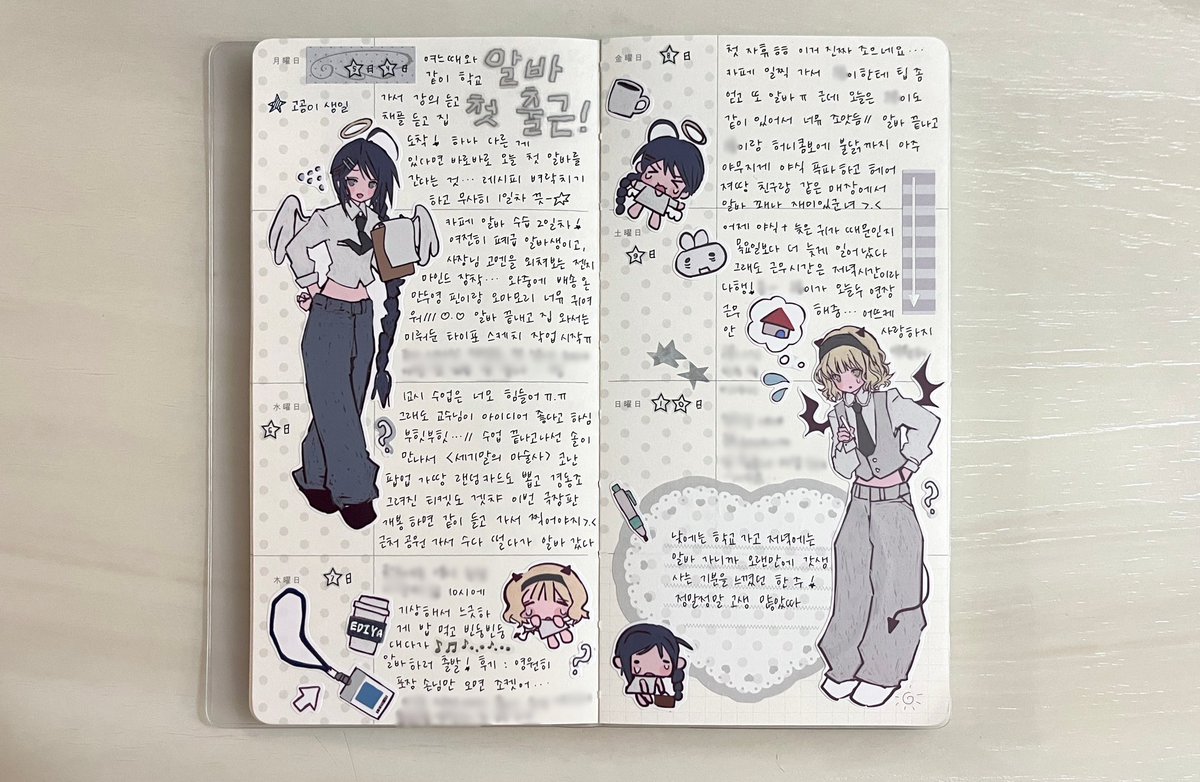 月曜日
4日 5日
고곰이 생일
알바
첫 출근!
여느때와
같이 학교
가서 강의 듣고
채플 듣고 집
도착! 하나 다른 게
있다면 바로바로 오늘 첫 알바를
간다는 것... 레시피 벼락치기
하고 무사히 1일차 끗-☆
카페 알바 수습 2일차!
여전히 폐급 알바생이고,
사장님 고멘을 외쳐보는 전지
마인드 장착... 와중에 배송 온
만두연 핀이랑 오마모리 너무 귀여
워/// ♡.♡ 알바 끝내고 집 와서는
미뤄둔 타이포 스케치 작업 시작ㅠ
水曜日
6日
12시 수업은 너모 힘들어 ㅠ.ㅠ
그래도 교수님이 아이디어 좋다고 하심
부힛부힛...// 수업 끝나고나선 솔이
만나서 <세기말의 마술사> 코난
팝업 가땅 랜덤카드도 뽑고 경동조
그려진 티켓도 겟챠 이번 극장판
개봉하면 같이 듣고 가서 찍어야지>.<
근처 공원 가서 수다 떨다가 알바 갔다
木曜日
7日
10시에
기상해서 느긋하
게 밥 먹고 빈둥빈둥
대다가
알바하러 출발! 후기 : 영원히
포장 손님만 오면 조켓어...
EDIYA
金曜日
8日
첫 자휴ㅎㅎ 이거 진짜 조으네요...
카페 일찍 가서 이한테 팁 좀
얻고 또 알바ㅠ 근데 오늘은 이도
같이 있어서 너뮤 조앗듬// 알바 끝나고
이랑 허니콤보에 불닭까지 아주
야무지게 야식 푹파하고 헤어
져땅 친구랑 같은 매장에서
알바 꽤나 재미있군녀 >.<
土曜日
9日
어제 야식 + 늦은 귀가 때문인지
목요일보다 더 늦게 일어났다
그래도 근무시간은 저녁시간이라
다행! 이가 오늘두 연장
근무 해줌... 어뜨케
안 사랑하지
日曜日
10日
낮에는 학교 가고 저녁에는
알바 가니까 오랜만에 갓생
사는 기분을 느꼈던 한 주!
정말정말 고생 많았따